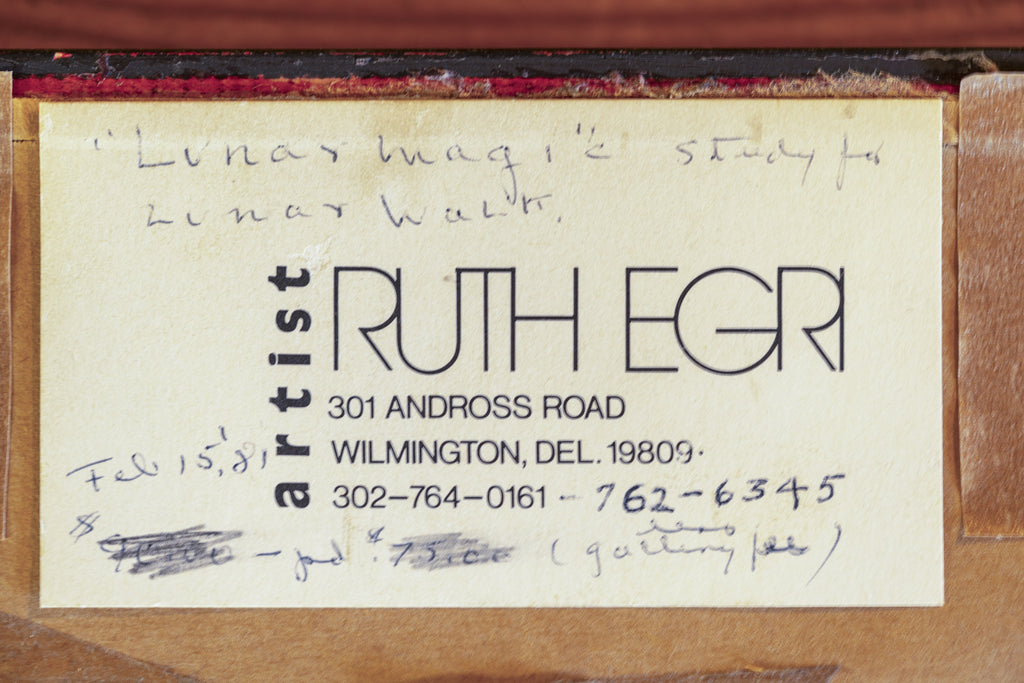 "Lunar Magic" study for
Lunar Walk.
artist
RUTH EGRI
301 ANDROSS ROAD
WILMINGTON, DEL. 19809.
Feb 15, '81
302–764–0161 - 762-6345
$ – pd $ 75.00 (gallery fee)